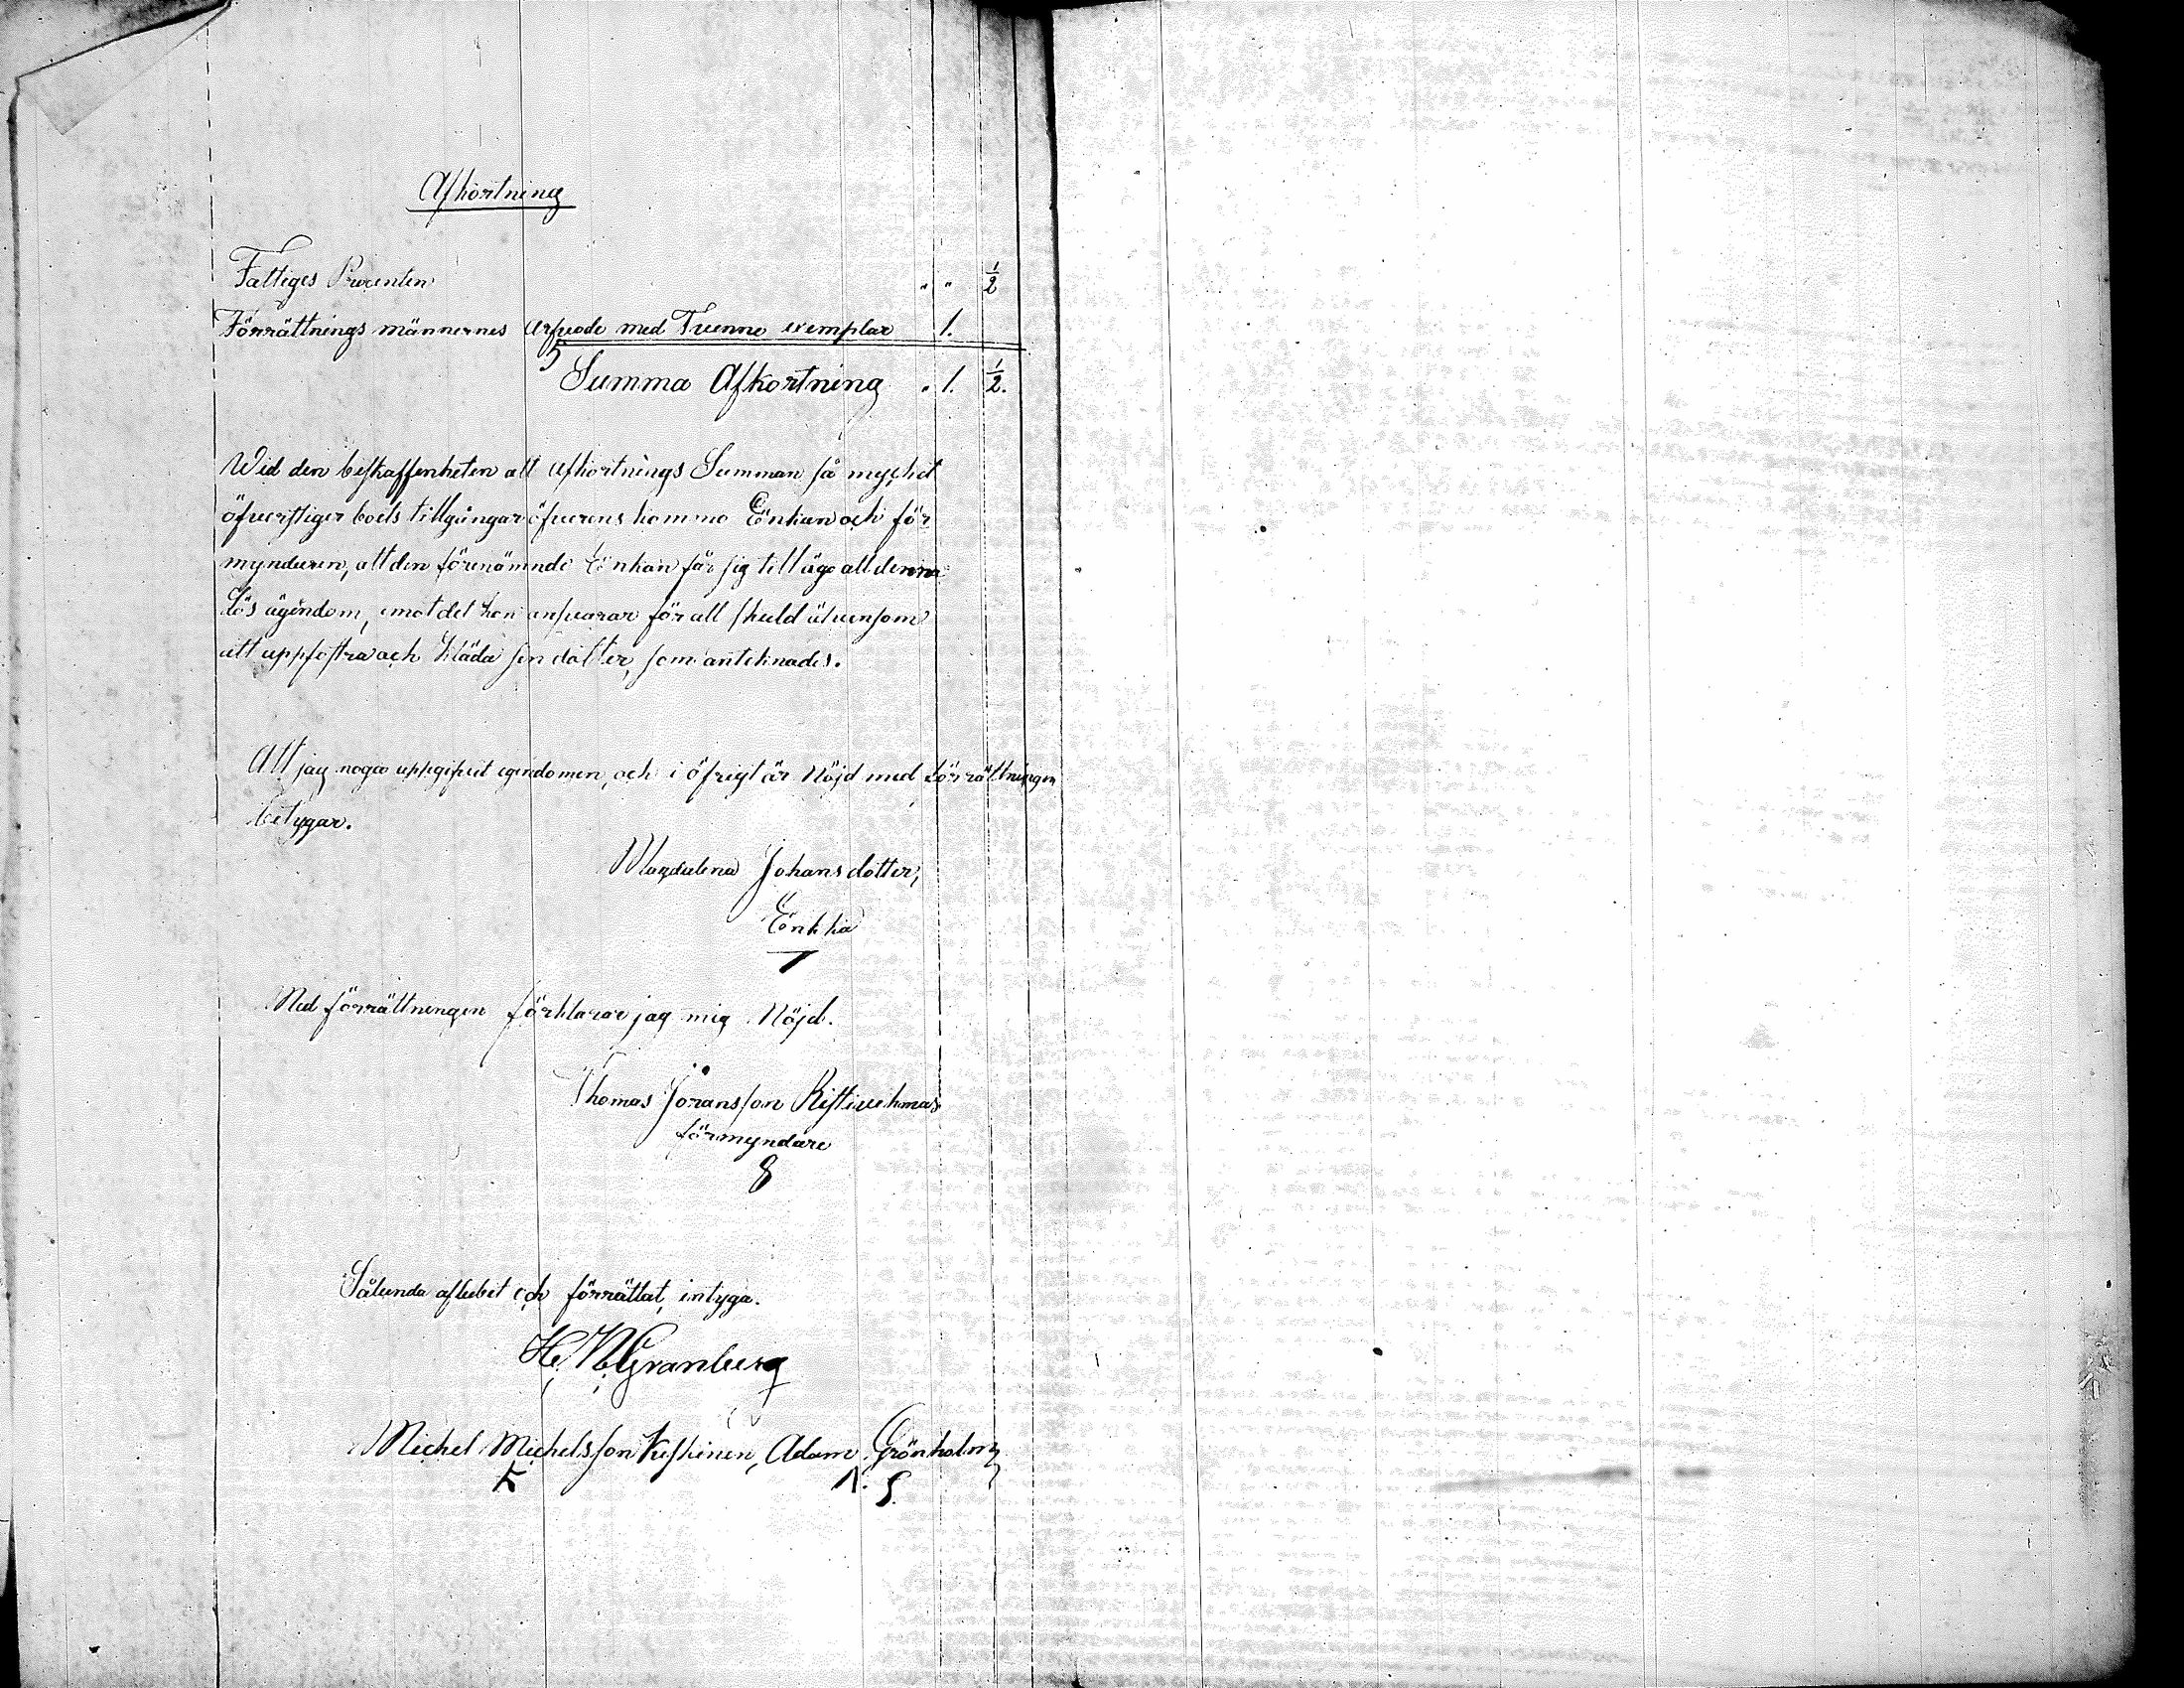 Afkortning
Fattiges Procenten " " 1/2
Förrättnings männernes arfvode med Tvenne exemplar 1.
Summa Afkortning " 1. 1/2.
Wid den beskaffenheten att afkortnings Summan så mycket
öfverstiger boets tillgångar öfverens kommo Enkan och för
myndaren, att den förenämnde Enkan får sig till äga all denna
lös ägendom, emot det hon ansvarar för all skuld äfvensom
att uppfostra och kläda sin dotter, som anteknades.
Att jag noga uppgifvit egendomen, och i öfrigt är Nöjd med förrättningen
betygar.
Magdalena Johans dotter,
Enkka
Med förrättningen förklarar jag mig Nöjd.
Thomas Jöransson
förmyndare
Sålunda aflubet och förrättat, intyga.
H. N. Granberg
Michel Michelsson Keskinen, Adam Grönholm
A. G.